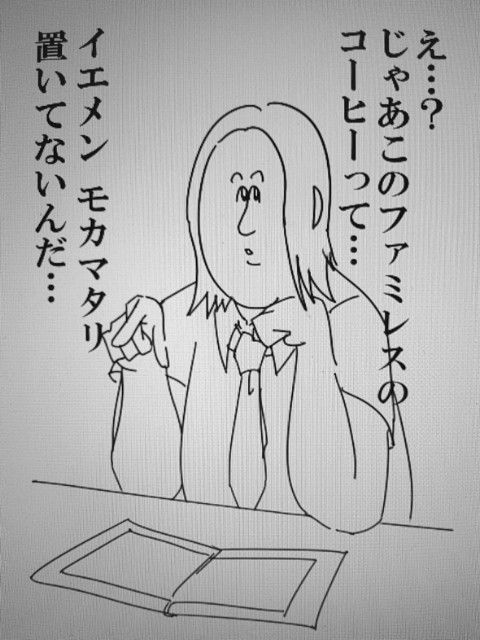 え…?
じゃあこのファミレスの
コーヒーって…
イエメン モカマタリ
置いてないんだ…